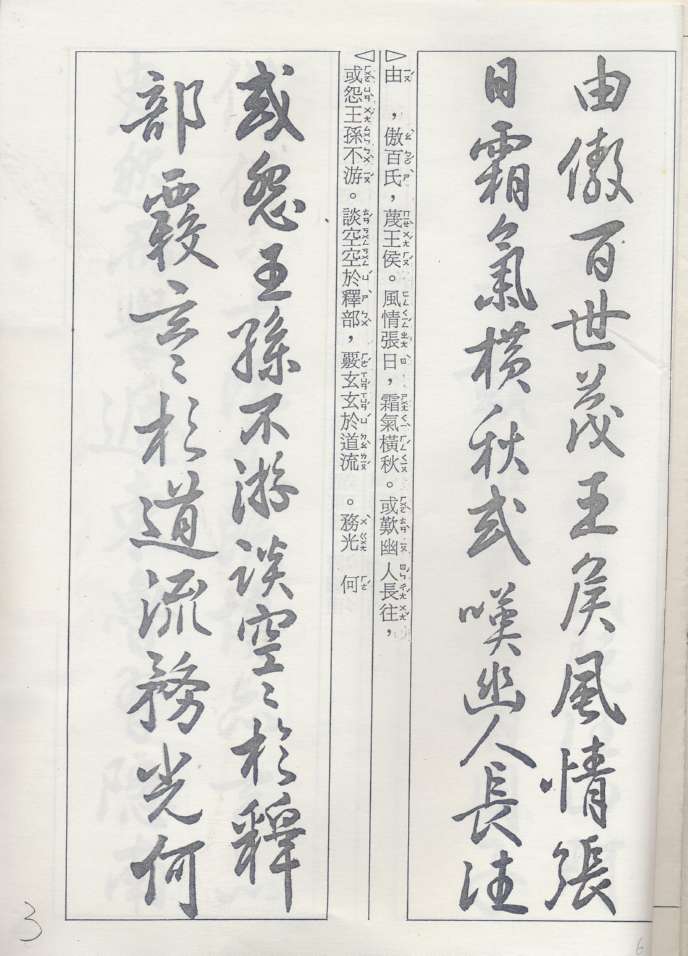 由傲百世蔑王侯風情張
日霜氣橫秋或嘆幽人長往
▷由 ,傲百氏,蔑王侯。風情張日,霜氣橫秋。或歎幽人長往,
◁或怨王孫不游。談空空於釋部,覈玄玄於道流 。務光 何
或怨王孫不游談空〻於釋
部覈玄〻於道流務光何
3
6